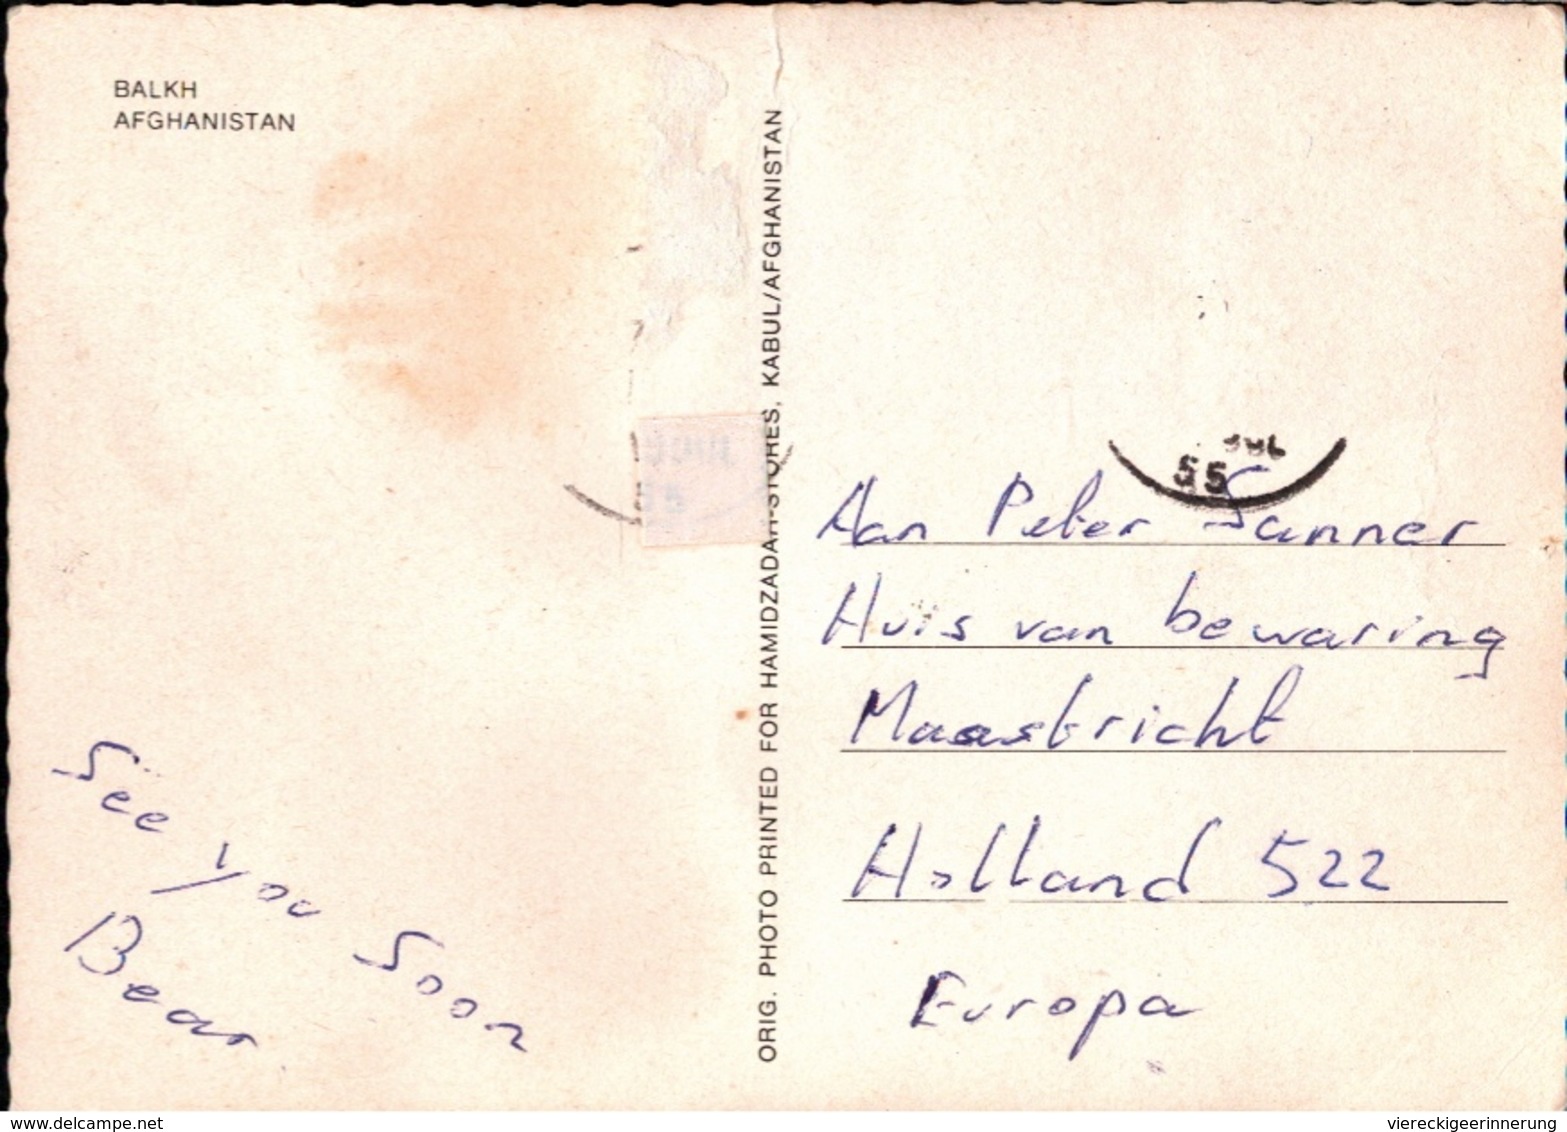 BALKH
AFGHANISTAN
See you soon
Bear
ORIG. PHOTO PRINTED FOR HAMIDZADAH-STORES, KABUL/AFGHANISTAN
55
Aan Peter Sanner
Huis van bewaring
Maastricht
Holland 522
Europa
www.delcampe.net
viereckigeerinnerung